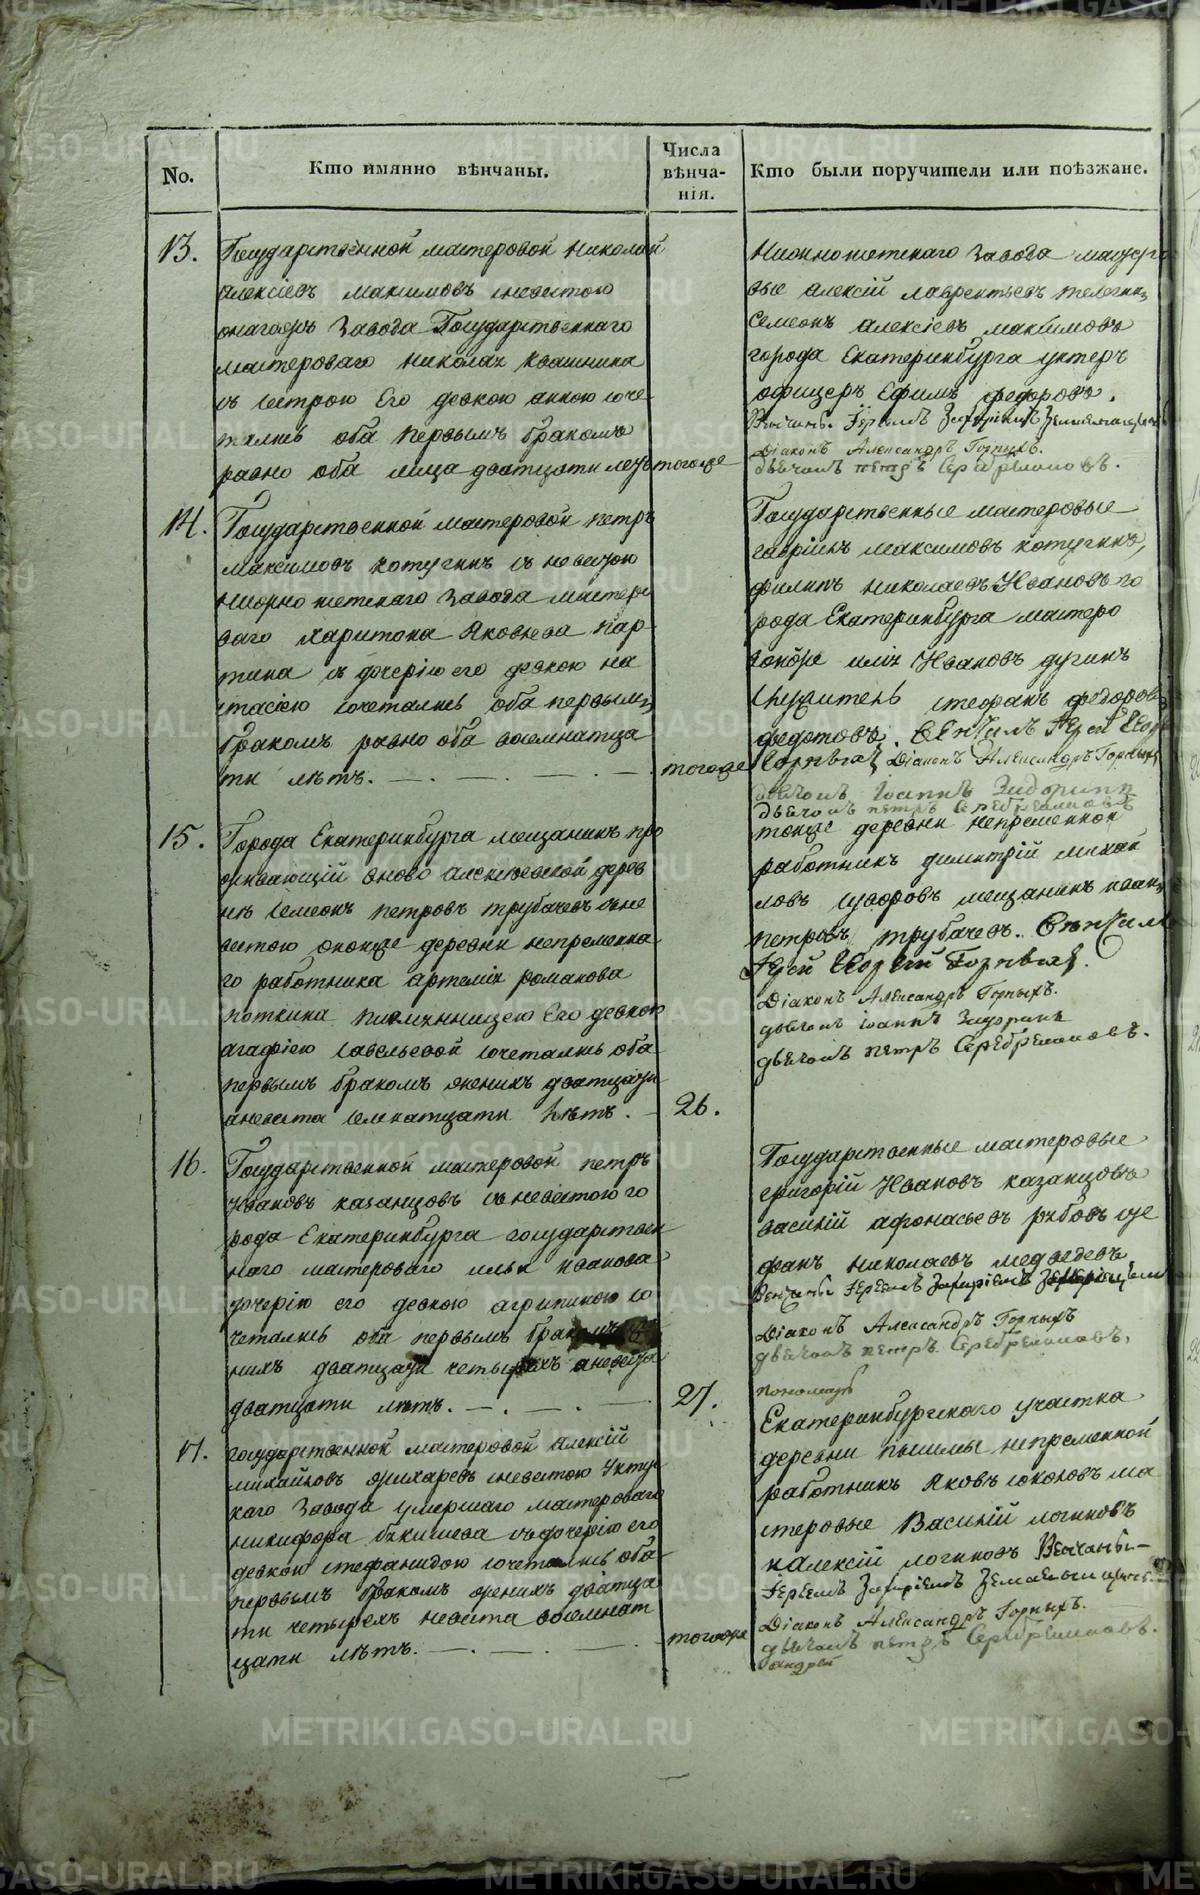 No.
Кто имянно вѣнчаны.
Числа
вѣнча-
нія.
Кто были поручители или поѣзжане.
13.
Государственной мастеровой Николай
Алексіевъ Максимовъ с невестою
онагожъ завода Государственнаго
мастероваго Николая Квашнина
съ сестрою Его девкою Анною соче-
тались оба первымъ бракомъ
равно оба лица дватцати летъ
тогоже
Нижноисетскаго завода мастеро
вые Алексій Лаврентьевъ Телегинъ
Семеонъ Алексіевъ Максимовъ
города Екатеринбурга унтеръ
офицеръ Ефимъ Федоровъ.
Венчаны Іереемъ Захаріемъ
Діаконъ Александръ Горныхъ.
дьячокъ петръ Серебрениковъ.
14.
Государственной мастеровой петръ
Максимовъ Котугинъ съ невестою
Нижно исетскаго завода мастеро
ваго Харитона Яковлева Пар-
тина съ дочерію его девкою На
стасіею сочетались оба первымъ
бракомъ равно оба восемнатца
ти лѣтъ.
тогоже
Государственные мастеровые
Гавріилъ Максимовъ Котугинъ,
Филипъ Николаевъ Ивановъ го
рода Екатеринбурга мастеро
Ивановъ Дугинъ
служитель Стефанъ Федоровъ
Федотовъ. Венчалъ Іерей Георгій
Діаконъ Александръ Горныхъ
дьячокъ Іоаннъ
дьячокъ петръ Серебрениковъ
15.
Города Екатеринбурга мещанинъ про
живающій вново Алексіевской дерев
не Семеонъ Петровъ Трубачевъ с не
вестою оноиже деревни непременна
го работника Артемія Романова
племянницею Его девкою
Агафіею Савельевой сочетались оба
первымъ бракомъ женихъ дватцати
а невеста семнатцати лѣтъ.
26.
тоиже деревни непременной
работникъ Димитрій Михаи
ловъ Суворовъ мещанинъ Иванъ
Петровъ Трубачевъ. Венчалъ
Іерей Георгій
Діаконъ Александръ Горныхъ.
дьячокъ Іоаннъ
дьячокъ петръ Серебрениковъ.
16.
Государственной мастеровой петръ
Ивановъ Казанцовъ съ невестою го
рода Екатеринбурга государствен
наго мастероваго Ильи Иванова
дочерію его девкою Агрипиною со
четались оба первымъ бракомъ
нихъ дватцати четырехъ а невеста
дватцати лѣтъ.
27.
Государственные мастеровые
Григорій Ивановъ Казанцовъ
Василій Афонасьевъ Рябовъ Сте
фанъ Николаевъ Медведевъ
Венчаны Іереемъ Захаріемъ
Діаконъ Александръ Горныхъ
дьячокъ петръ Серебрениковъ,
пономарь
17.
Государственной мастеровой Алексій
Михайловъ Жихаревъ с невестою Укту
скаго завода умершаго мастероваго
Никифора съ дочерію его
девкою Стефанидою сочетались оба
первымъ бракомъ женихъ дватца
ти четырехъ невеста восемнат
цати лѣтъ.
тогоже
Екатеринбургскаго участка
деревни Пышмы непременной
работникъ Яковъ Соколовъ ма
стеровые Василій Логиновъ
и Алексій Логиновъ Венчаны
Іереемъ Захаріемъ
Діаконъ Александръ Горныхъ.
дьячокъ петръ Серебрениковъ.
Андрей
METRIKI.GASO-URAL.RU